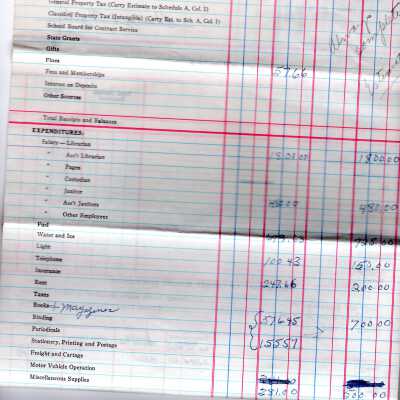 General Property Tax (Carry Estimate to Schedule A, Col. I)
Classified Property Tax (Intangible) (Carry Est. to Sch. A, Col. I)
School Board for Contract Service
State Grants
Gifts
Fines 57.66
Fees and Memberships
Interest on Deposits
Other Sources
Total Receipts and Balances
EXPENDITURES:
Salary — Librarian
" Ass't Librarian 1800.00
" Pages
" Custodian
" Janitor
" Ass't Janitors 480.00
" Other Employees
Fuel
Water and Ice
Light
Telephone 100.43 150.00
Insurance
Rent 247.66 200.00
Taxes
Books & Magazines
Binding 576.45 700.00
Periodicals
Stationery, Printing and Postage 155.57
Freight and Cartage
Motor Vehicle Operation
Miscellaneous Supplies
281.00 500.00